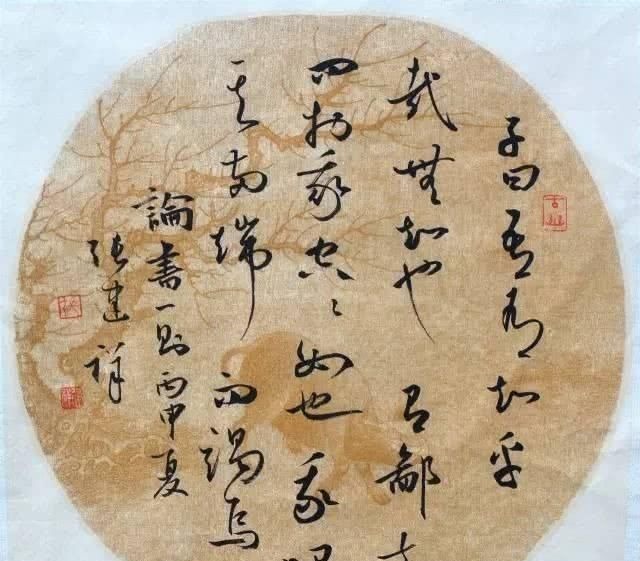 子曰吾有知乎
哉無知也有鄙
問於我空〻如也我
其兩端而竭焉
論書一則丙申夏
張建祥